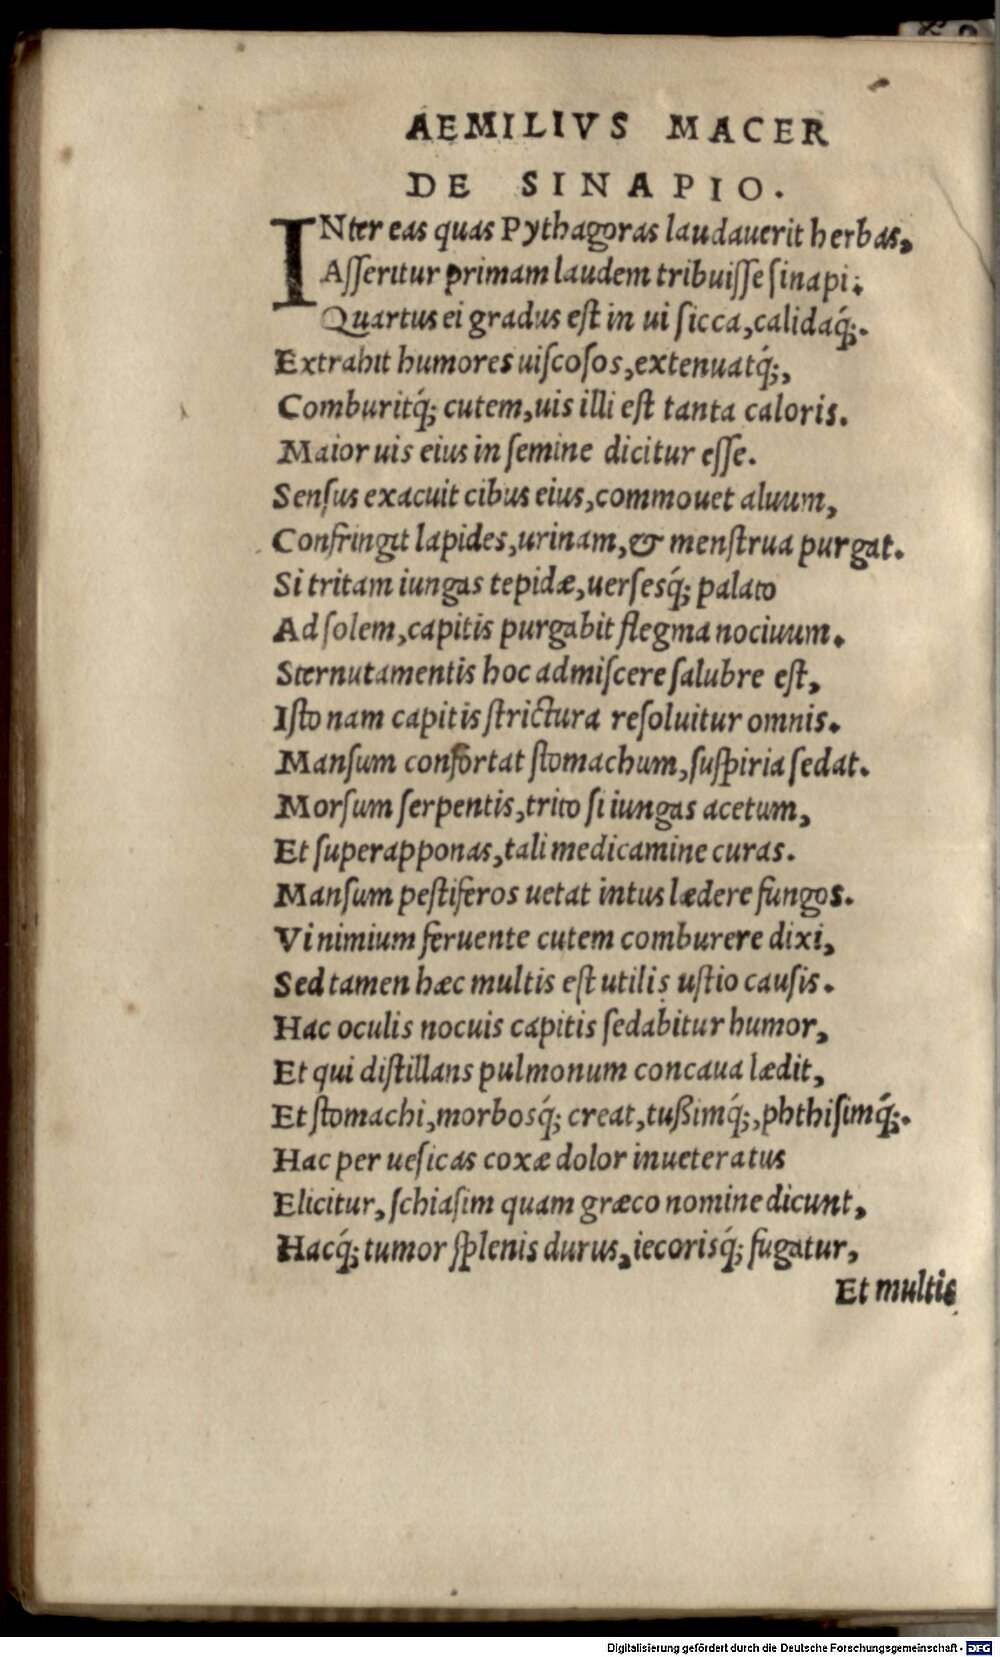 AEMILIVS MACER
DE SINAPIO.
INter eas quas Pythagoras laudauerit herbas,
Aſſeritur primam laudem tribuiſſe ſinapi:
Quartus ei gradus eſt in ui ſicca, calidaq́;.
Extrahit humores uiſcoſos, extenuatq́;,
Comburitq́; cutem, uis illi eſt tanta caloris.
Maior uis eius in ſemine dicitur eſſe.
Senſus exacuit cibus eius, commouet aluum,
Confringit lapides, urinam, & menſtrua purgat.
Si tritam iungas tepidæ, uerſesq́; palato
Ad ſolem, capitis purgabit flegma nociuum.
Sternutamentis hoc admiſcere ſalubre eſt,
Iſto nam capitis ſtrictura reſoluitur omnis.
Manſum confortat ſtomachum, ſuſpiria ſedat.
Morſum ſerpentis, trito ſi iungas acetum,
Et ſuperapponas, tali medicamine curas.
Manſum peſtiferos uetat intus lædere fungos.
Vi nimium feruente cutem comburere dixi,
Sed tamen hæc multis eſt utilis uſtio cauſis.
Hac oculis nocuis capitis ſedabitur humor,
Et qui diſtillans pulmonum concaua lædit,
Et ſtomachi, morbosq́; creat, tußimq́;, phthiſimq́;.
Hac per ueſicas coxæ dolor inueteratus
Elicitur, ſchiaſim quam græco nomine dicunt,
Hacq́; tumor ſplenis durus, iecorisq́; fugatur,
Et multis
Digitalisierung gefördert durch die Deutsche Forschungsgemeinschaft - DFG